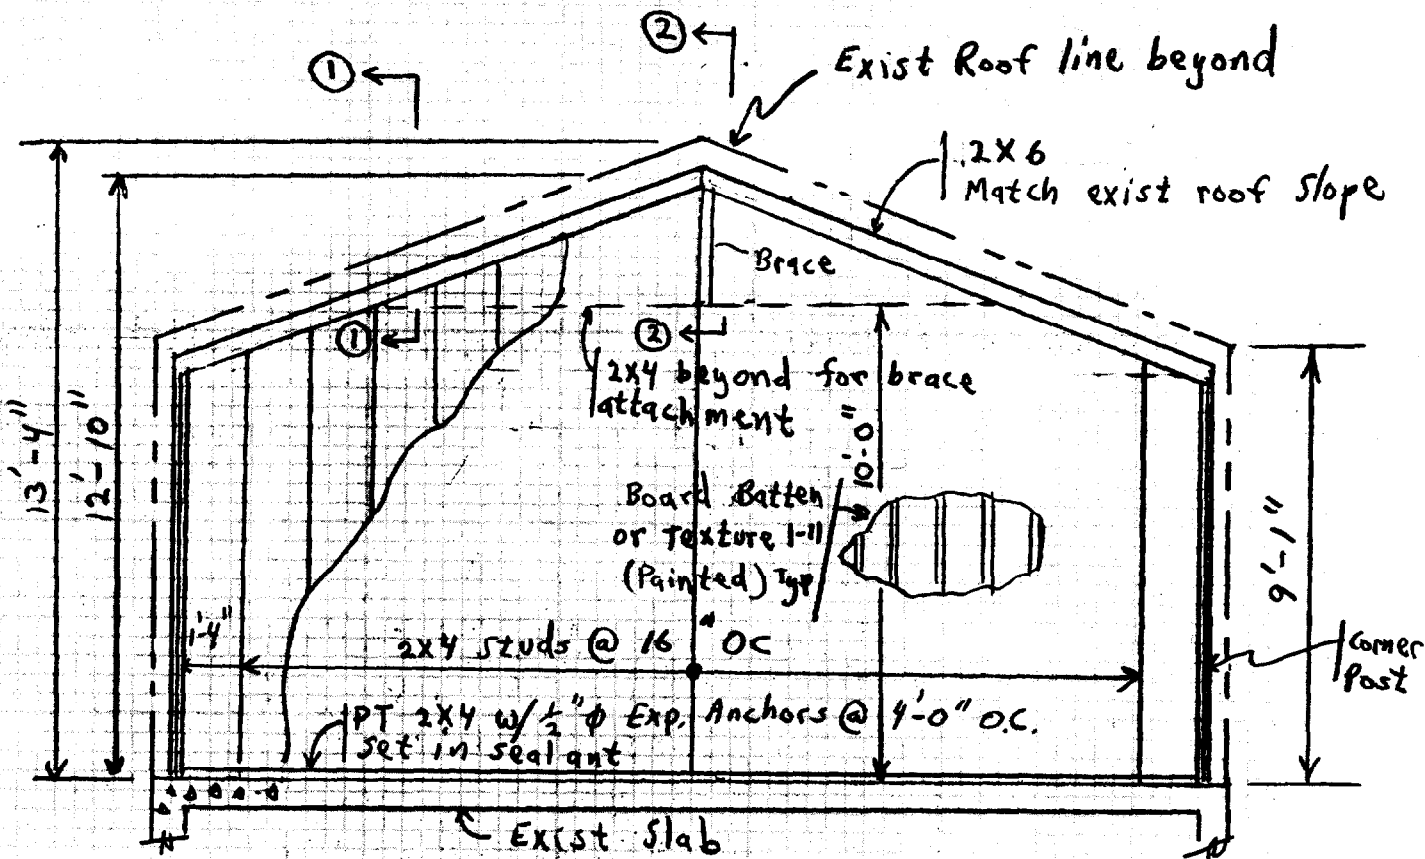 ②
①
Exist Roof line beyond
2X6
Match exist roof slope
Brace
①
②
2X4 beyond for brace
attachment
13'-4"
12'-10"
10'-0"
Board Batten
or Texture 1-11
(Painted) Typ
9'-1"
1'-4"
2X4 Studs @ 16" OC
Corner
Post
PT 2X4 w/ 1/2"φ Exp. Anchors @ 4'-0" O.C.
set in sealant
Exist Slab